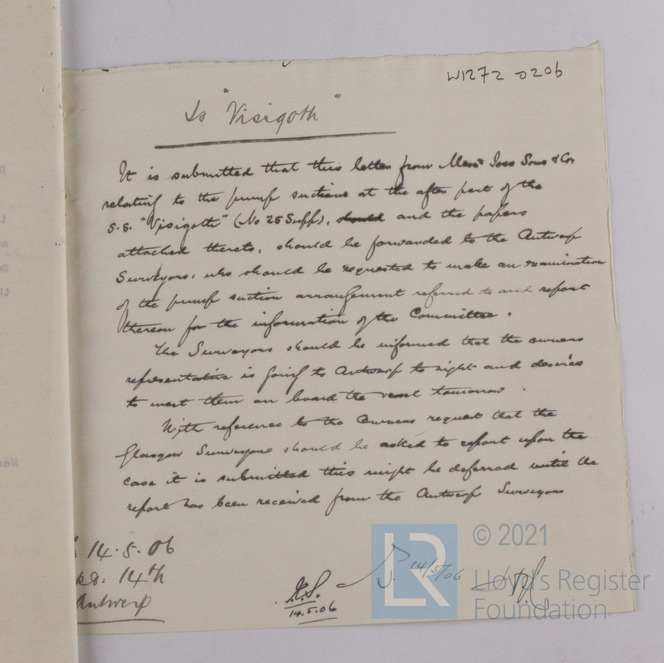 W1272 0206
Is "Visigoth"
It is submitted that this letter from Messrs Joss Sons & Co
relating to the pump suctions at the after part of the
s.s. "Visigoth" (No 25 Supp), should and the papers
attached thereto, should be forwarded to the Antwerp
Surveyors, who should be requested to make an examination
of the pump suction arrangement referred to and report
thereon for the information of the Committee.
The Surveyors should be informed that the owners
representative is going to Antwerp to night and desires
to meet them on board the vessel tomorrow.
With reference to the Owners request that the
Glasgow Surveyors should be asked to report upon the
case it is submitted this might be deferred until the
report has been received from the Antwerp Surveyors
14.5.06
14th
Antwerp
14.5.06
14/5/06
LR
© 2021
Lloyd's Register
Foundation